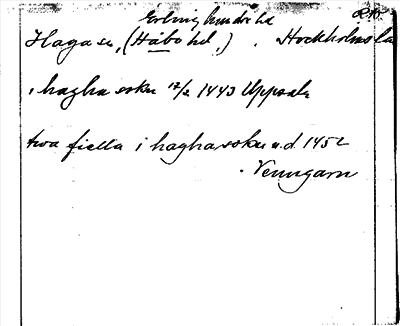 Erlinghundra hd
Haga sn, (Håbo hd,). Stockholms län
i hagha sokn 12/2 1443 Uppsala
twa fiella i haghasokn u.d. 1452
. Venngarn